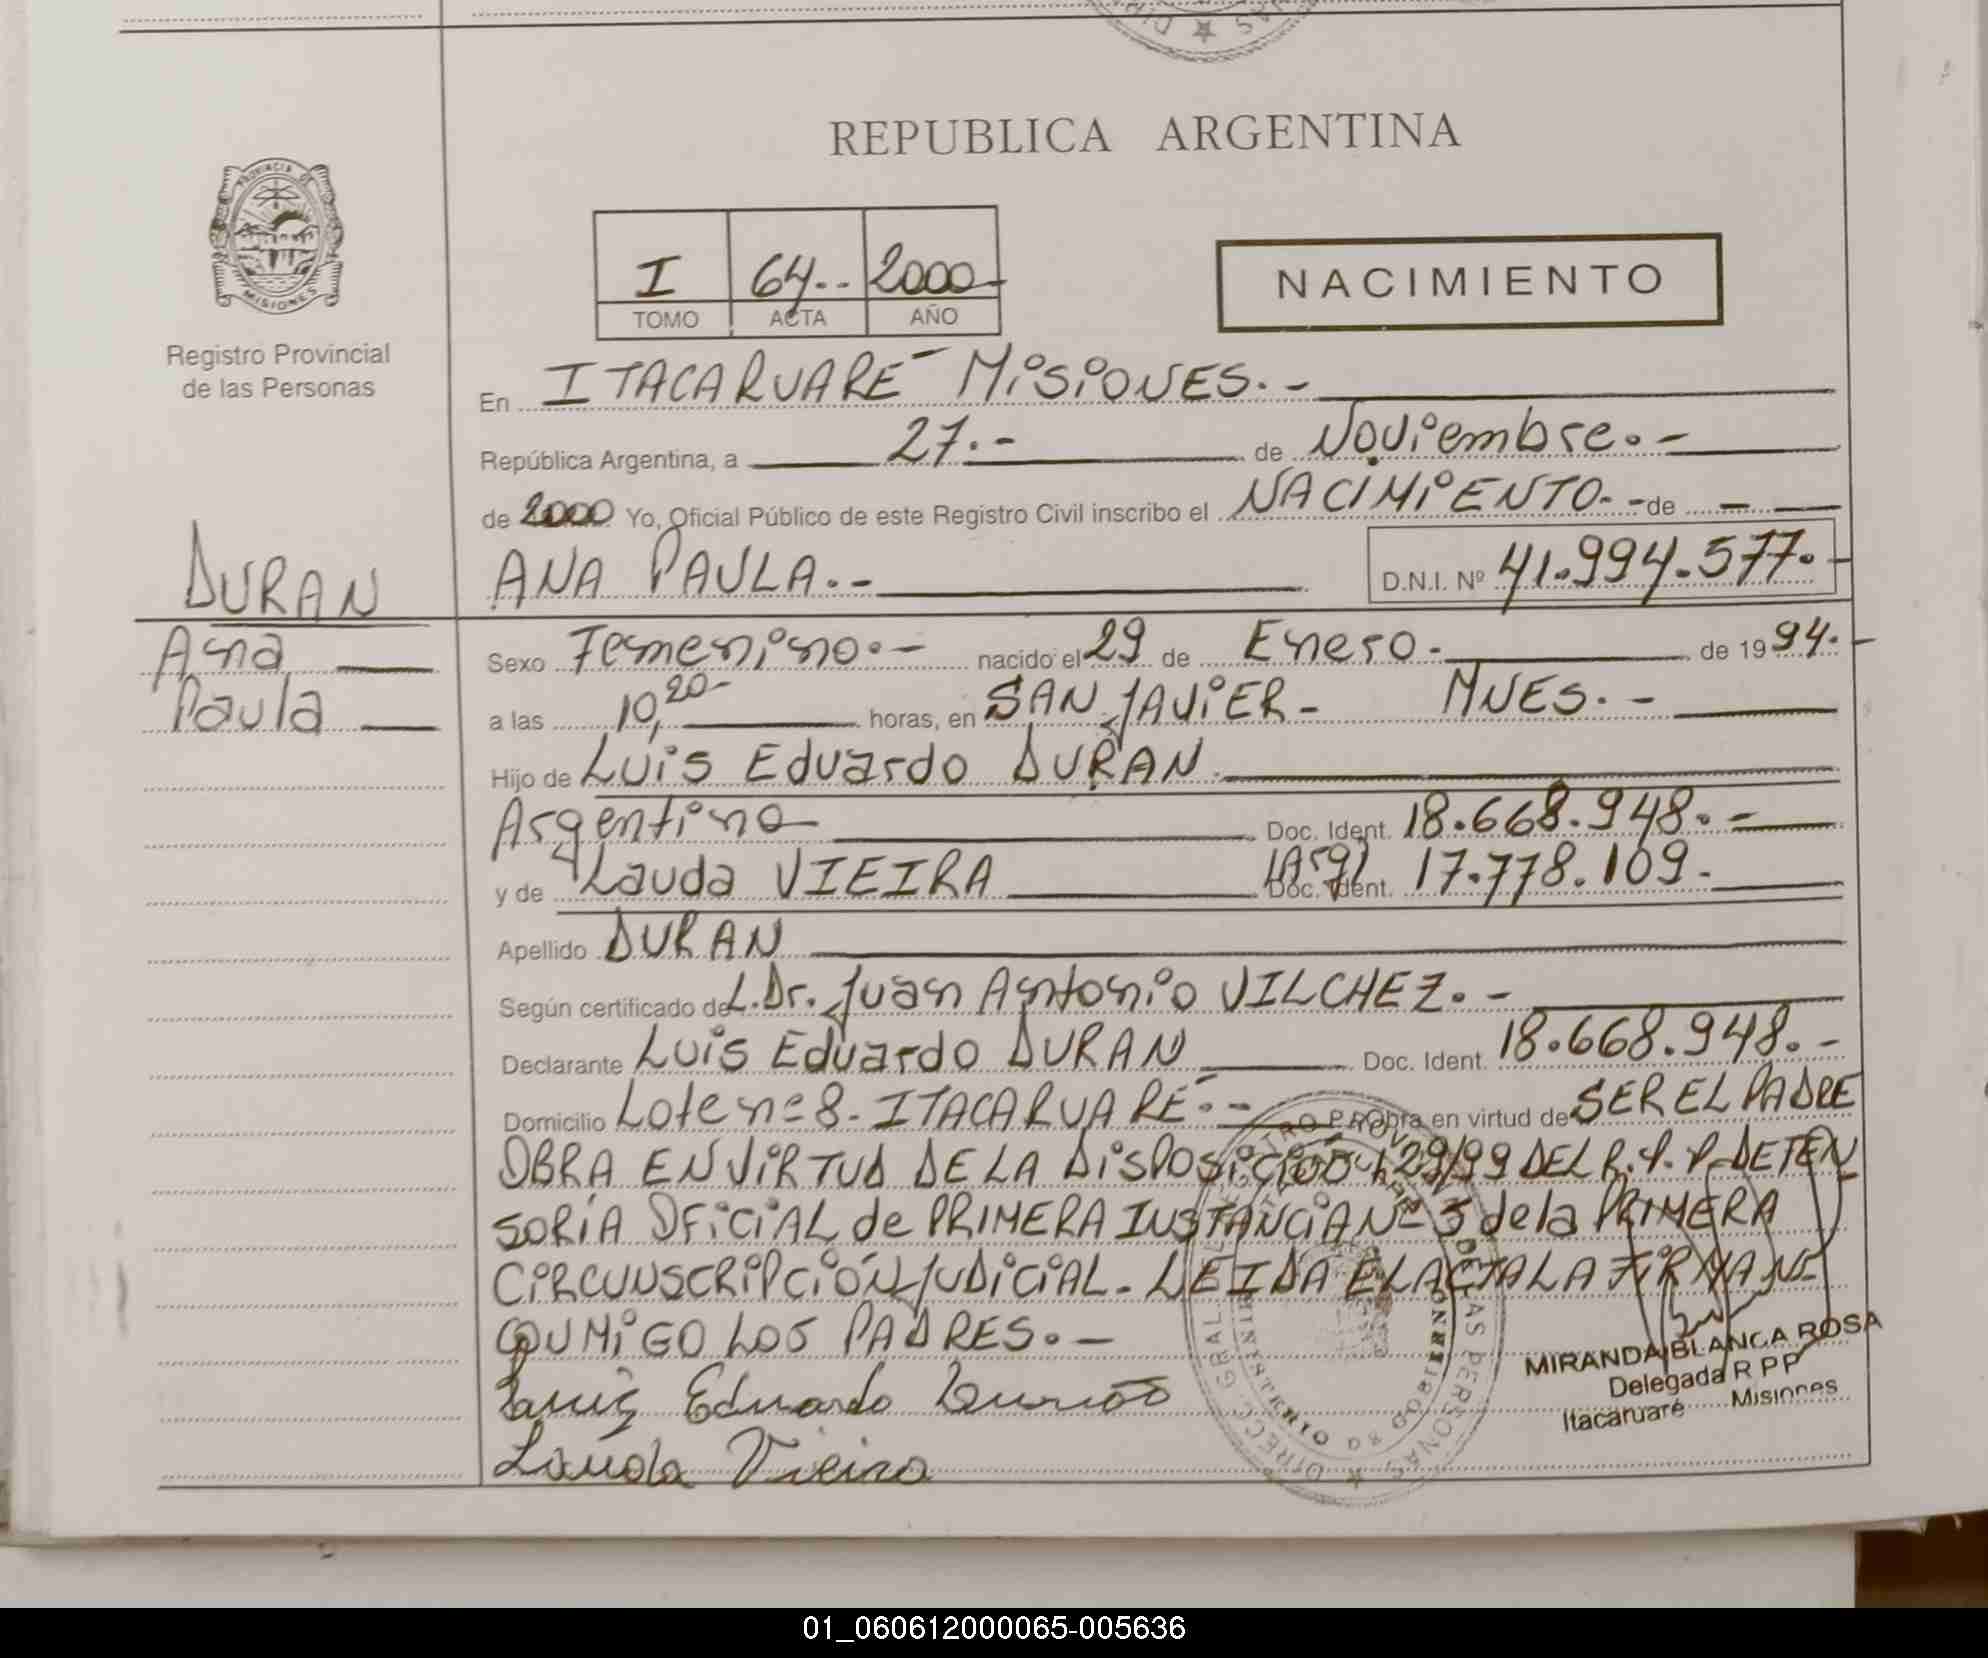 REPUBLICA ARGENTINA
PROVINCIA DE
MISIONES
Registro Provincial
de las Personas
I 64.. 2000-
TOMO ACTA AÑO
NACIMIENTO
En ITACARUARE MiSiONES.-
República Argentina, a 27.- de Noviembre.-
de 2000 Yo, Oficial Público de este Registro Civil inscribo el NACIMiENTO.- de -
DURAN
Ana
Paula
ANA PAULA.- D.N.I. Nº 41.994.577.-
Sexo Femenino.- nacido el 29 de Enero. de 1994.-
a las 10,20- horas, en SAN JAViER- MNES.-
Hijo de Luis Eduardo DURAN.
Argentino Doc. Ident. 18.668.948.-
y de Lauda VIEIRA (Arg) Doc. Ident. 17.778.109.-
Apellido DURAN
Según certificado de L.Dr. Juan Antonio VILCHEZ.-
Declarante Luis Eduardo DURAN Doc. Ident. 18.668.948.-
Domicilio Lote nº 8. ITACARUARÉ.- Obra en virtud de SER EL PADRE
OBRA EN ViRTUD DE LA DiSPOSiCiÓN 129/99 DEL R.P.P. DEFEN
SORÍA OFiCiAL de PRIMERA INSTANCiA Nº 3 de la PRIMERA
CiRCUNSCRiPCiÓN JUDiCiAL. LEIDA EL ACTA LA FiRMAN
CONMiGO LOS PADRES.-
Luis Eduardo Duran
Lauda Vieira
MIRANDA BLANCA ROSA
Delegada R P P
Itacaruaré Misiones
01_060612000065-005636